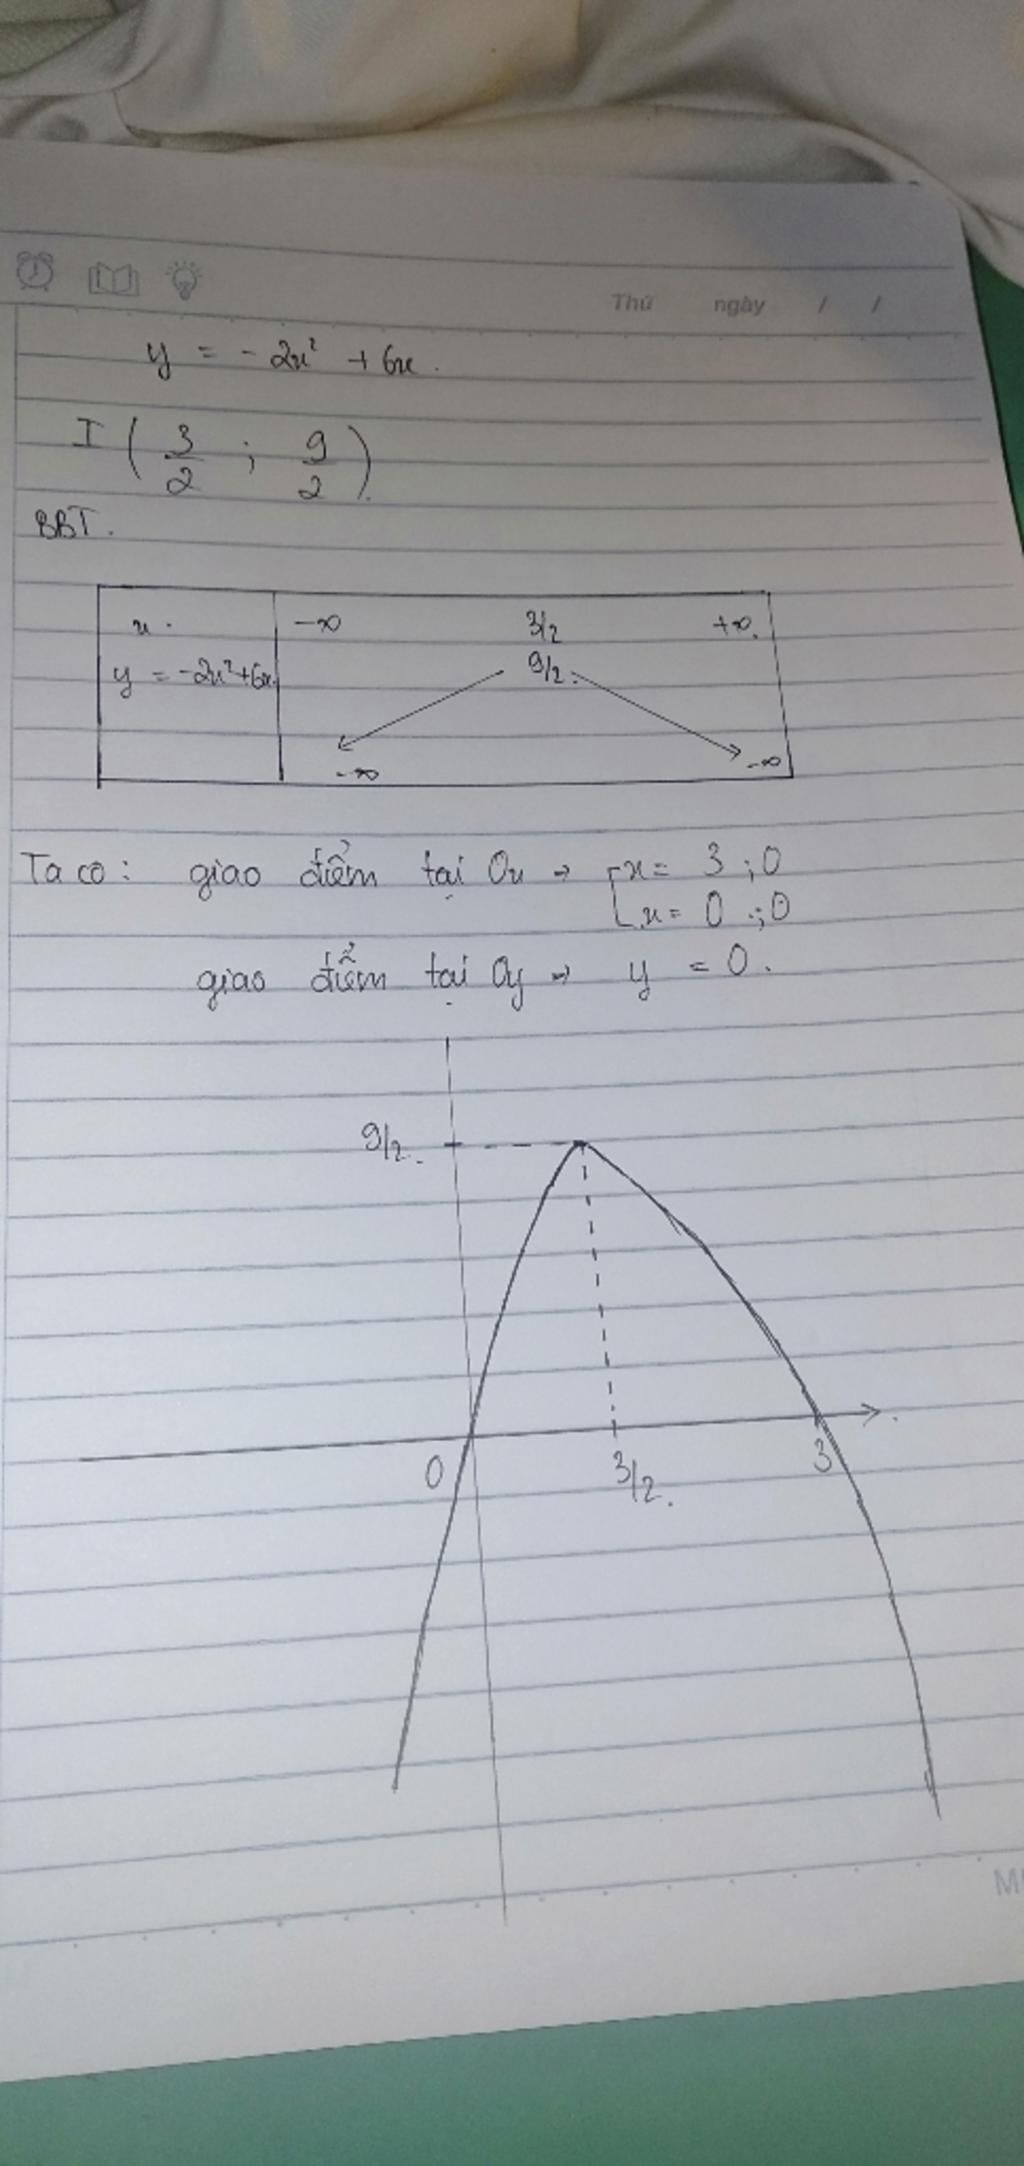 Thứ ngày / /
y = -2x² + 6x.
I ( 3/2 ; 9/2 ).
BBT.
x. -∞ 3/2 +∞.
y = -2x²+6x 9/2.
-∞ -∞
Ta co: giao điểm tại Ox → [ x = 3 ; 0
x = 0 ; 0
giao điểm tại Oy → y = 0.
9/2.
0 3/2. 3